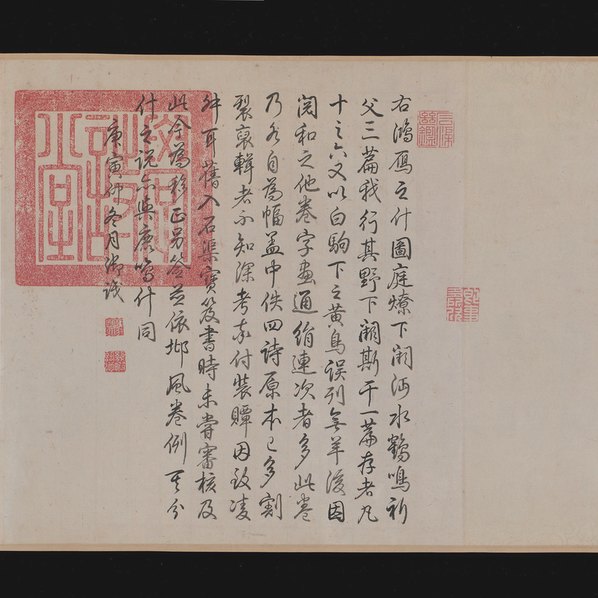 右鴻雁之什圖庭燎下闕沔水鶴鳴祈
父三篇我行其野下闕斯干一篇存者凡
十之六又以白駒下之黃鳥誤列無羊後因
閱和之他卷字畫通絹連次者多此卷
乃各自為幅蓋中佚四詩原本已多割
裂裒輯者不知深考率付裝贉因致凌
舛耳舊入石渠寶笈書時未嘗審核及
此今為移正另簽並依邶風卷例其分
什之說亦與鹿鳴什同
庚寅仲冬月御識